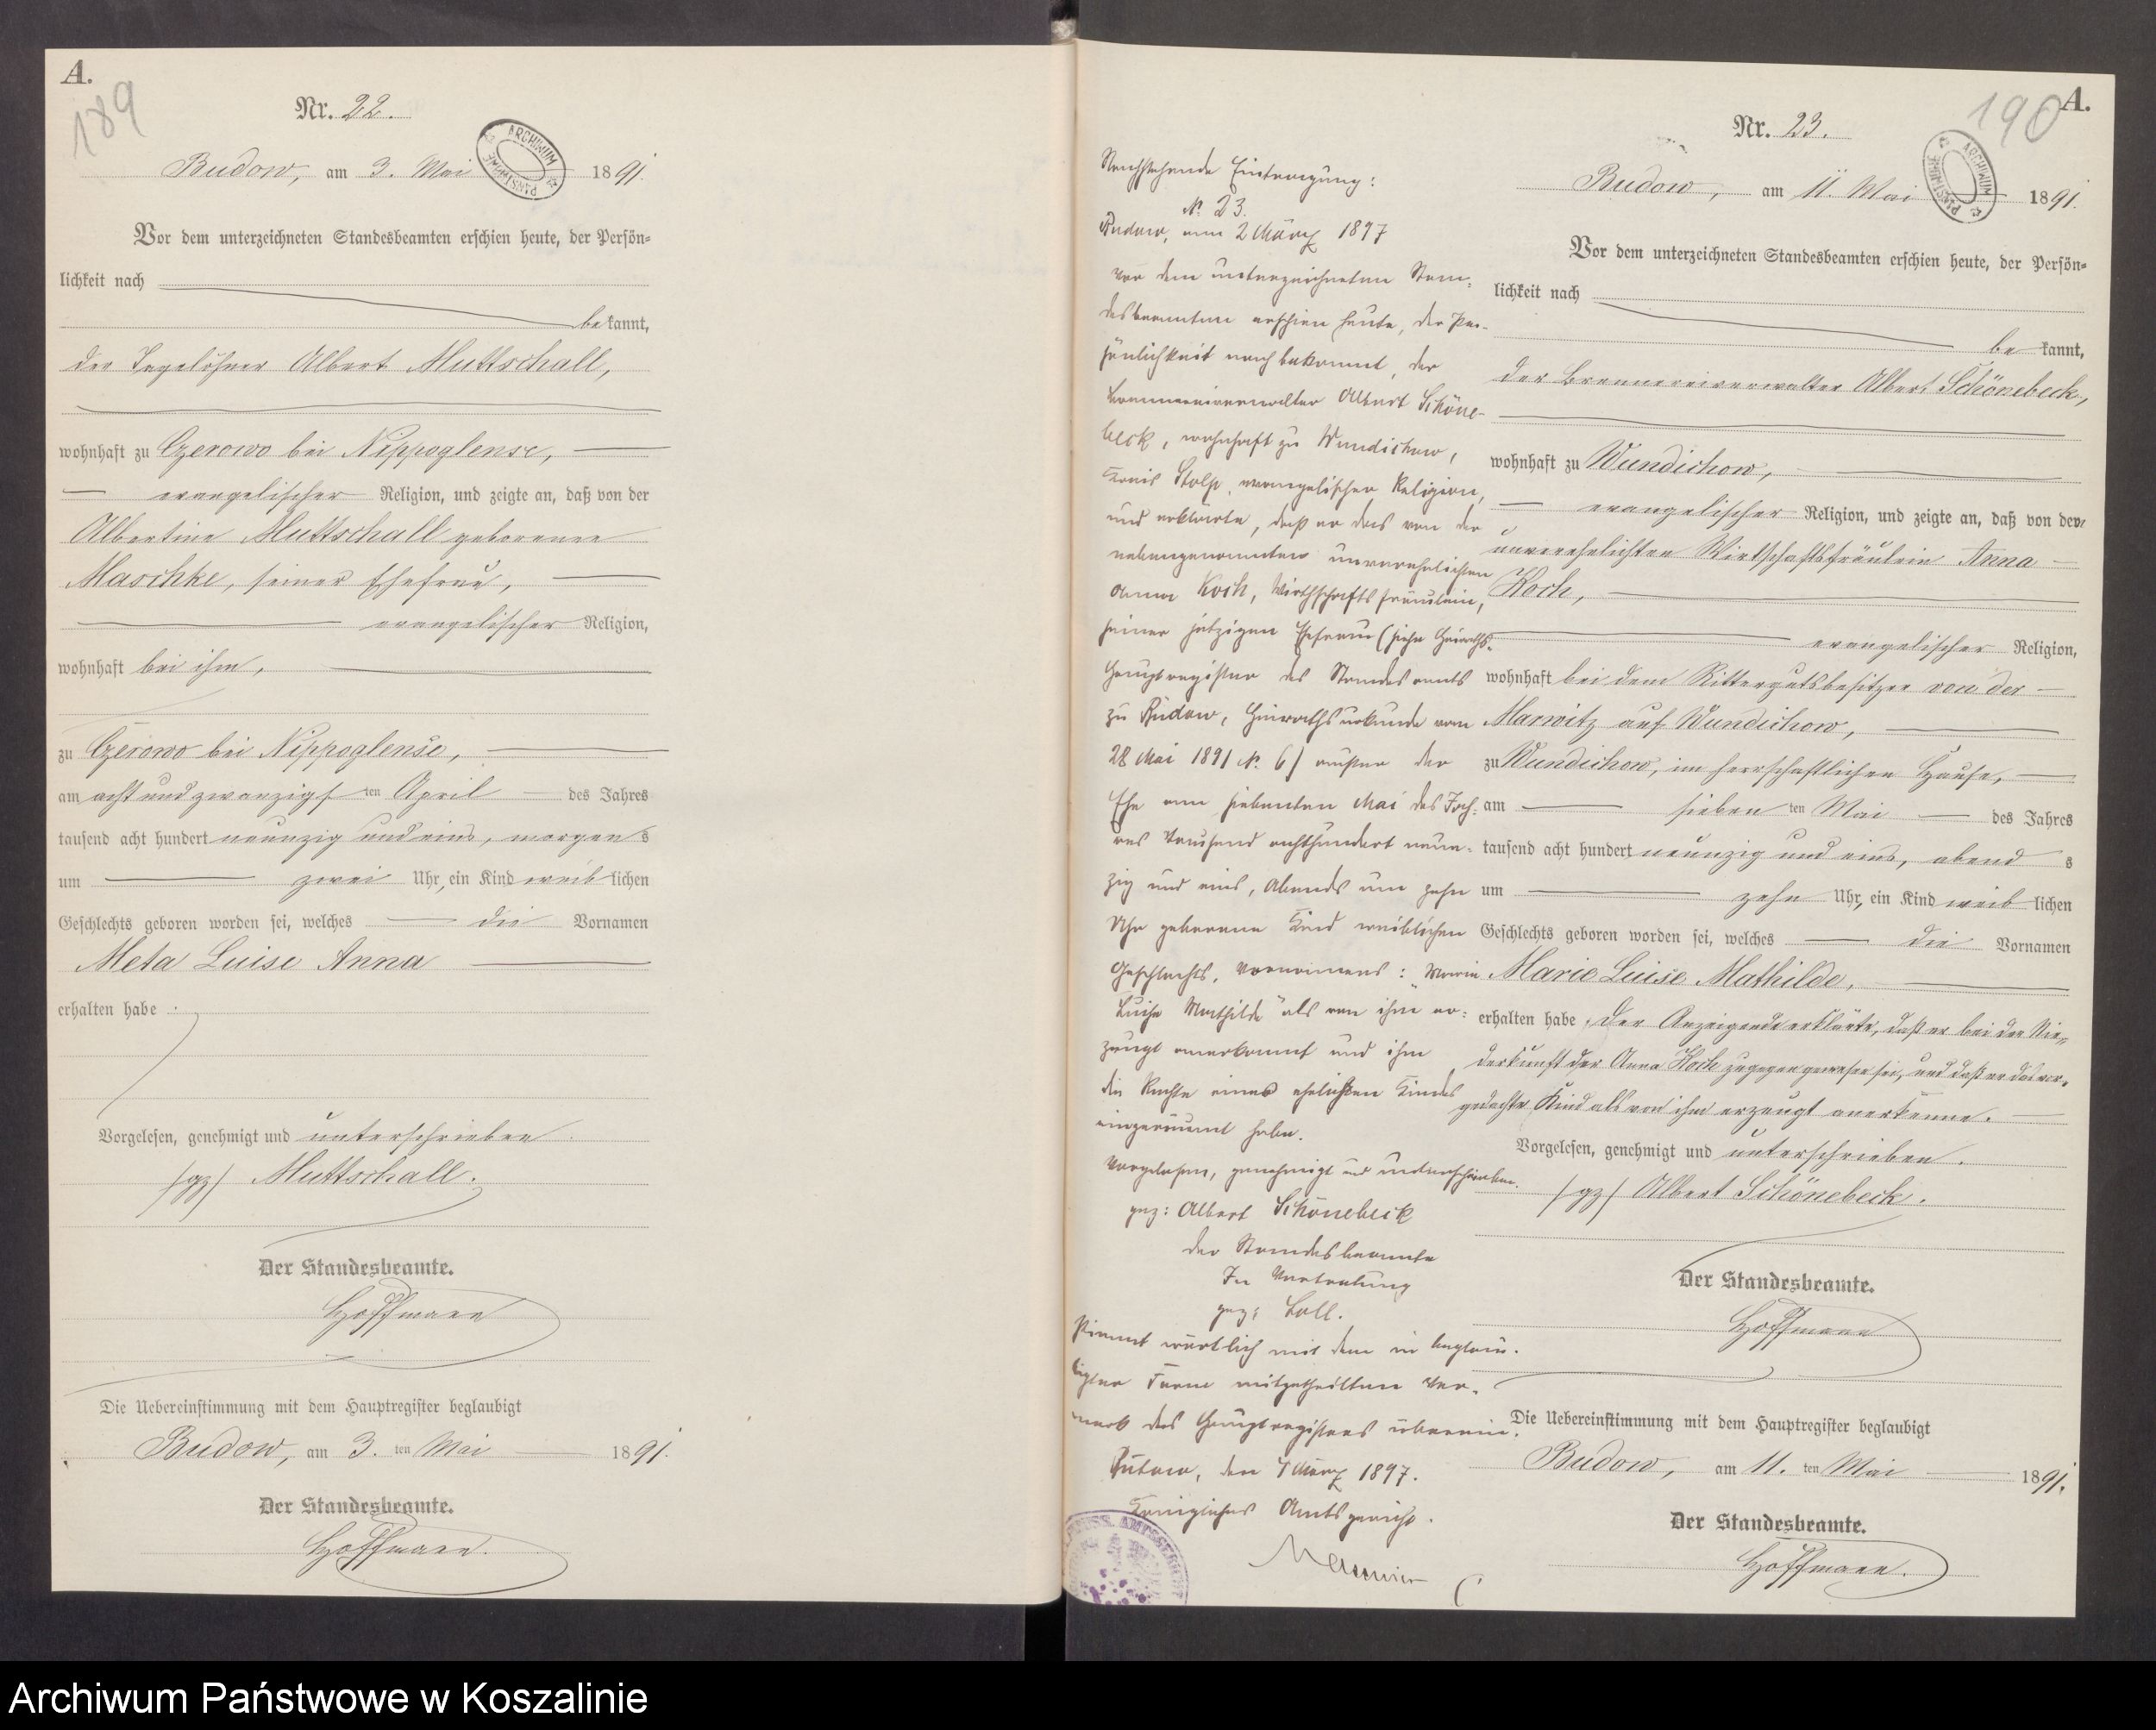 A.
189
Nr. 22.
ARCHIWUM PAŃSTWOWE
Budow, am 3. Mai 1891.
Vor dem unterzeichneten Standesbeamten erschien heute, der Persön=
lichkeit nach
bekannt,
der Tagelöhner Albert Muttschall,
wohnhaft zu Czerowo bei Nippoglense,
evangelischer Religion, und zeigte an, daß von der
Albertine Muttschall geborenen
Maschke, seiner Ehefrau,
evangelischer Religion,
wohnhaft bei ihm,
zu Czerowo bei Nippoglense,
am acht und zwanzigsten April des Jahres
tausend acht hundert neunzig und eins, morgens
um zwei Uhr, ein Kind weiblichen
Geschlechts geboren worden sei, welches die Vornamen
Meta Luise Anna
erhalten habe.
Vorgelesen, genehmigt und unterschrieben.
/gz/ Muttschall.
Der Standesbeamte.
Hoffmann
Die Uebereinstimmung mit dem Hauptregister beglaubigt
Budow, am 3. ten Mai 1891.
Der Standesbeamte.
Hoffmann.
Nachstehende Eintragung:
№ 23.
Budow, am 2 März 1897
vor dem unterzeichneten Stan=
desbeamten erschien heute, der Per-
sönlichkeit nach bekannt, der
Brennereiverwalter Albert Schöne-
beck, wohnhaft zu Wundichow,
Kreis Stolp, evangelischer Religion,
und erklärte, daß er das von der
nebengenannten unverehelichten
Anna Koch, Wirthschaftsfräulein,
seiner jetzigen Ehefrau (siehe Heiraths-
Hauptregister des Standesamts
zu Budow, Heirathsurkunde vom
28 Mai 1891 № 6) außer der
Ehe am siebenten Mai des Jah=
res tausend achthundert neun=
zig und eins, Abends um zehn
Uhr geborene Kind weiblichen
Geschlechts, Vornamens: "Marie
Luise Mathilde" als von ihm er=
zeugt anerkannt und ihm
die Rechte eines ehelichen Kindes
eingeräumt habe.
Vorgelesen, genehmigt und unterschrieben.
gez: Albert Schönebeck
Der Standesbeamte
In Vertretung
gez: Loll.
Stimmt wörtlich mit dem in beglau-
bigter Form mitgetheilten Ver-
merk des Hauptregisters überein.
Bütow, den 4 März 1897.
Königliches Amtsgericht.
A.
190
Nr. 23.
ARCHIWUM PAŃSTWOWE
Budow, am 11. Mai 1891.
Vor dem unterzeichneten Standesbeamten erschien heute, der Persön=
lichkeit nach
bekannt,
der Brennereiverwalter Albert Schönebeck,
wohnhaft zu Wundichow,
evangelischer Religion, und zeigte an, daß von der
unverehelichten Wirtschaftsfräulein Anna
Koch,
evangelischer Religion,
wohnhaft bei dem Rittergutsbesitzer von der
Marwitz auf Wundichow,
zu Wundichow, im herrschaftlichen Hause,
am sieben ten Mai des Jahres
tausend acht hundert neunzig und eins, abends
um zehn Uhr, ein Kind weiblichen
Geschlechts geboren worden sei, welches die Vornamen
Marie Luise Mathilde,
erhalten habe. Der Anzeigende erklärte, daß er bei der Nie=
derkunft der Anna Koch zugegen gewesen sei, und daß er das vor=
gedachte Kind als von ihm erzeugt anerkenne.
Vorgelesen, genehmigt und unterschrieben.
/gz/ Albert Schönebeck.
Der Standesbeamte.
Hoffmann
Die Uebereinstimmung mit dem Hauptregister beglaubigt
Budow, am 11. ten Mai 1891.
Der Standesbeamte.
Hoffmann.
Archiwum Państwowe w Koszalinie